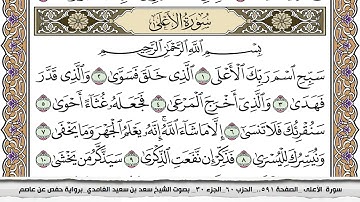 سورة الأعلى
بِسْمِ اللَّهِ الرَّحْمَٰنِ الرَّحِيمِ
سَبِّحِ اسْمَ رَبِّكَ الْأَعْلَى ١ الَّذِي خَلَقَ فَسَوَّىٰ ٢ وَالَّذِي قَدَّرَ
فَهَدَىٰ ٣ وَالَّذِي أَخْرَجَ الْمَرْعَىٰ ٤ فَجَعَلَهُ غُثَاءً أَحْوَىٰ ٥
سَنُقْرِئُكَ فَلَا تَنسَىٰ ٦ إِلَّا مَا شَاءَ اللَّهُ إِنَّهُ يَعْلَمُ الْجَهْرَ وَمَا يَخْفَىٰ ٧
وَنُيَسِّرُكَ لِلْيُسْرَىٰ ٨ فَذَكِّرْ إِن نَّفَعَتِ الذِّكْرَىٰ ٩ سَيَذَّكَّرُ مَن يَخْشَىٰ ١٠
سورة الأعلى _الصفحة ٥٩١_ الحزب ٦٠_ الجزء ٣٠_ بصوت الشيخ سعد بن سعيد الغامدي _برواية حفص عن عاصم